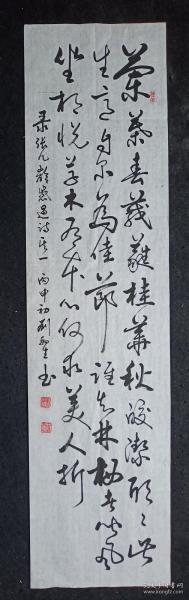 蘭葉春葳蕤桂華秋皎潔欣々此
生意自尔為佳節誰知林栖者聞風
坐相悅草木有本心何求美人折
录張九齡感遇詩其一 丙申初 书